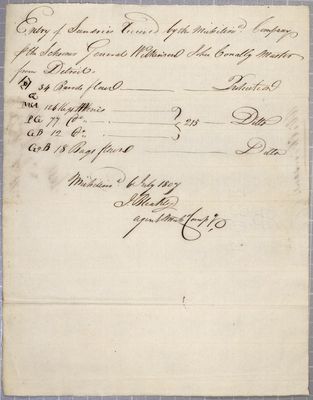 Entry of Sundries Received by the Michilimd Company
p the Schooner General Wilkinson John Conally Master
from Detroit
34 Barrels flour Protection
a
MA 126 Kegs Wines
PG 77 Do 215 Ditto
GB 12 Do
GB 18 Bags flour Ditto
Michilimd 6 July 1807
J. Bleakley
Agent Mich Comp y